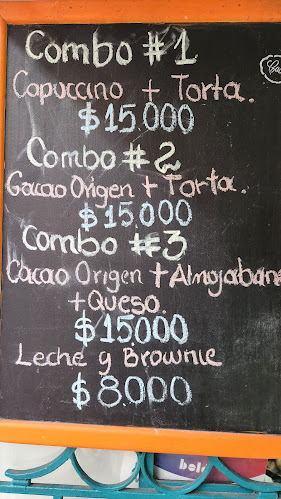 Combo #1
Capuccino + Torta.
$15.000
Combo #2
Cacao Origen + Torta.
$15.000
Combo #3
Cacao Origen + Almojabana
+ Queso.
$15000
Leche y Brownie
$8.000